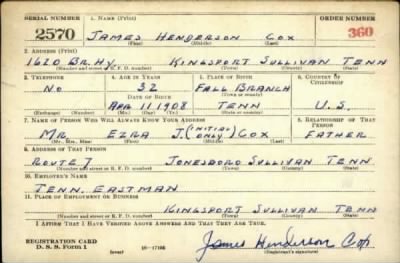 SERIAL NUMBER 1. NAME (Print) ORDER NUMBER
2570 JAMES HENDERSON COX 360
(First) (Middle) (Last)
2. ADDRESS (Print)
1620 BR. HY KINGSPORT SULLIVAN TENN
(Number and street or R. F. D. number) (Town) (County) (State)
3. TELEPHONE 4. AGE IN YEARS 5. PLACE OF BIRTH 6. COUNTRY OF CITIZENSHIP
No 32 FALL BRANCH
DATE OF BIRTH (Town or county)
APR 11 1908 TENN U.S.
(Exchange) (Number) (Mo.) (Day) (Yr.) (State or country)
7. NAME OF PERSON WHO WILL ALWAYS KNOW YOUR ADDRESS 8. RELATIONSHIP OF THAT PERSON
MR EZRA J. (INITIAL ONLY) COX FATHER
(Mr., Mrs., Miss) (First) (Middle) (Last)
9. ADDRESS OF THAT PERSON
ROUTE 7 JONESBORO SULLIVAN TENN
(Number and street or R. F. D. number) (Town) (County) (State)
10. EMPLOYER'S NAME
TENN. EASTMAN
11. PLACE OF EMPLOYMENT OR BUSINESS
KINGSPORT SULLIVAN TENN
(Number and street or R. F. D. number) (Town) (County) (State)
I AFFIRM THAT I HAVE VERIFIED ABOVE ANSWERS AND THAT THEY ARE TRUE.
REGISTRATION CARD
D. S. S. Form 1 (over) James Henderson Cox
(Registrant's signature)